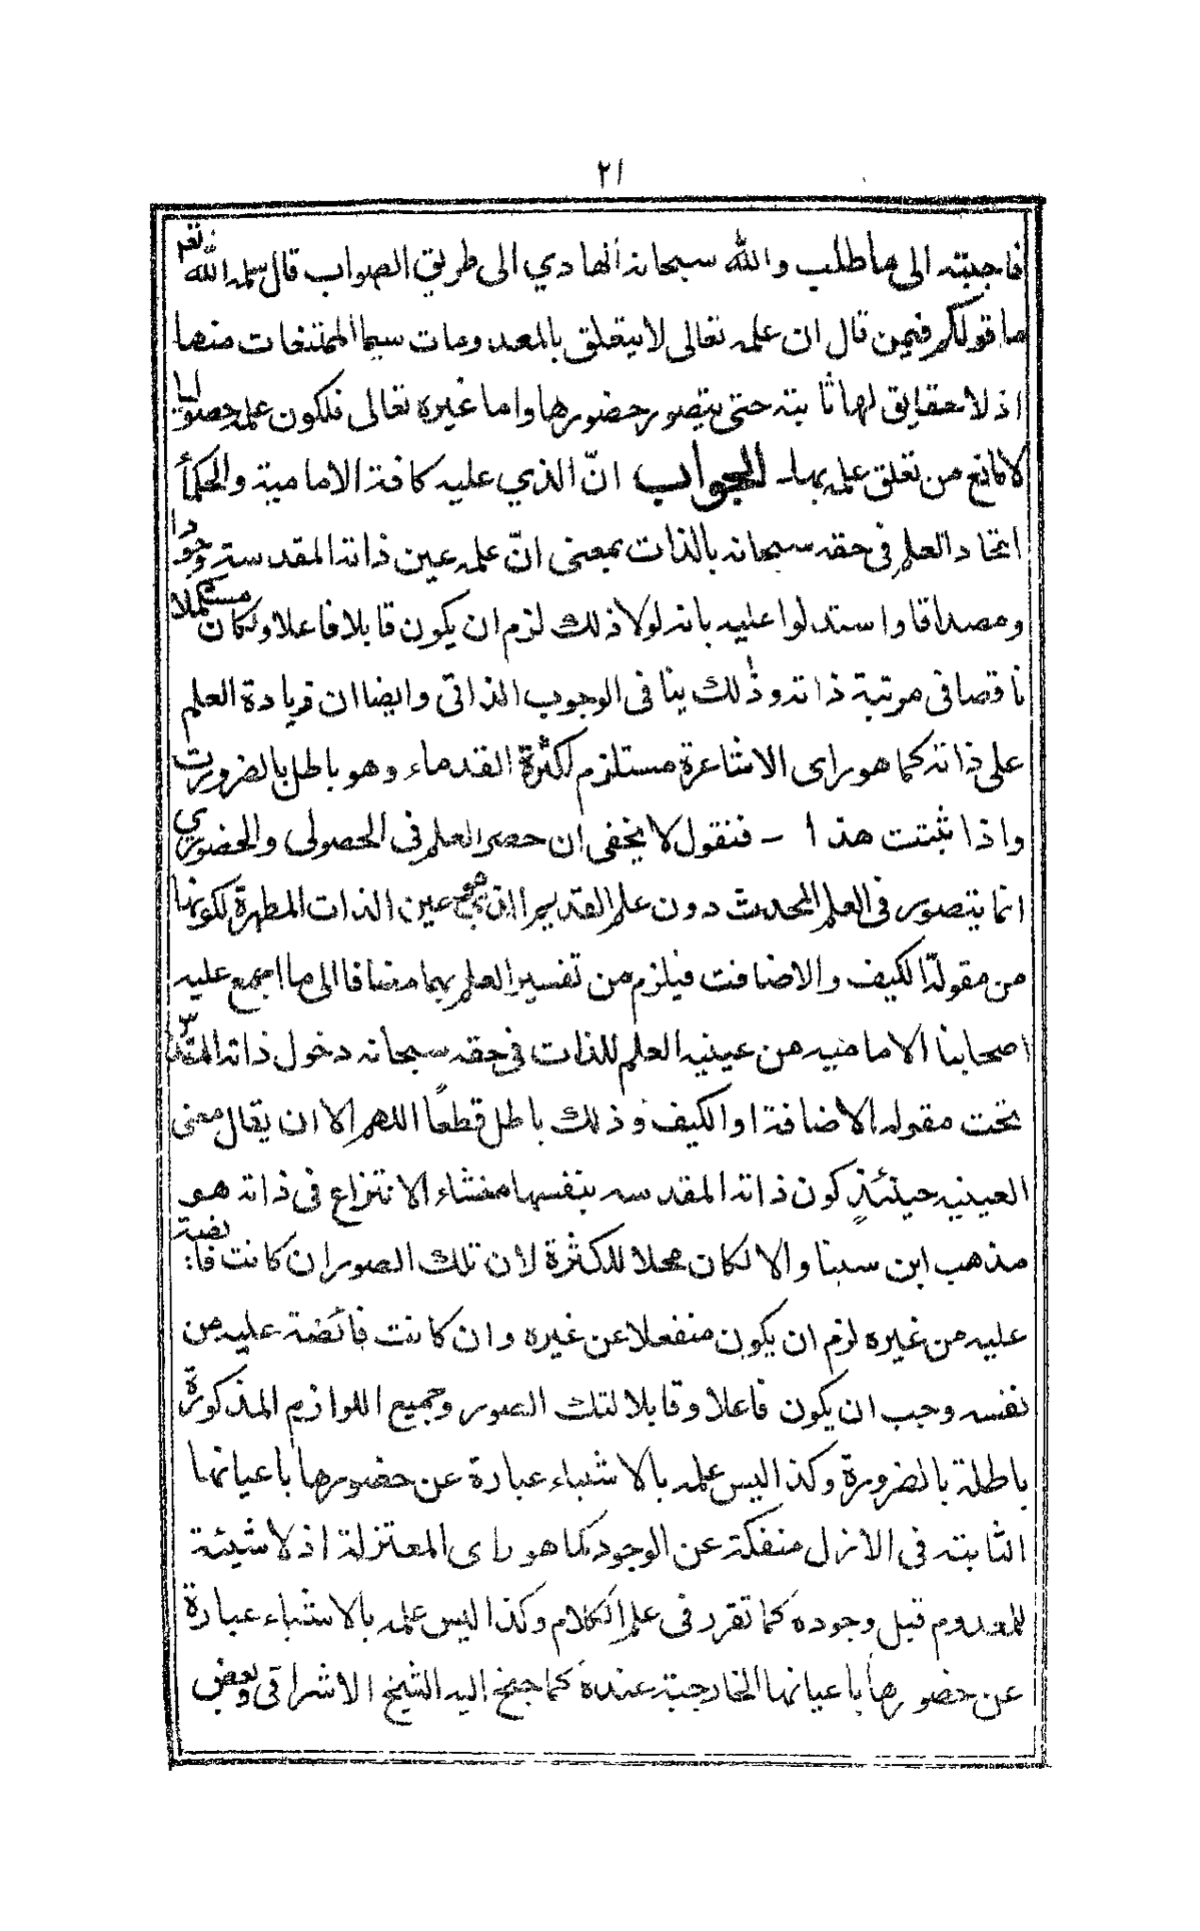 ٢١
فاجبته الى ما طلب والله سبحانه الهادي الى طريق الصواب قال سلمه الله تعم
ما قولكم فيمن قال ان علمه تعالى لا يتعلق بالمعدومات سيما الممتنعات منها
اذ لا حقايق لها ثابتة حتى يتصور حضورها واما غيره تعالى فلكون علمه حصوليا
لا مانع من تعلق علمه بها - الجواب انّ الذي عليه كافة الامامية والحكماء
اتحاد العلم في حقه سبحانه بالذات بمعنى انّ علمه عين ذاته المقدسة وجودا
ومصداقا واستدلوا عليه بانه لولا ذلك لزم ان يكون قابلا فاعلا ولكان مستكملا
ناقصا في مرتبة ذاته وذلك ينافى الوجوب الذاتي وايضا ان زيادة العلم
على ذاته كما هو راى الاشاعرة مستلزم لكثرة القدماء وهو باطل بالضرورت
واذا ثبتت هذا - فنقول لا يخفى ان حصر العلم في الحصولى والحضوري
انما يتصور في العلم المحدث دون علم القديم الذي هو عين الذات المطهرة لكونهما
من مقولة الكيف والاضافت فيلزم من تفسير العلم بهما مضافا الى ما اجمع عليه
اصحابنا الاماميه من عينيه العلم للذات في حقه سبحانه دخول ذاته المقدسة
تحت مقوله الاضافة او الكيف وذلك باطل قطعًا اللهم الا ان يقال معنى
العينيه حينئذٍ كون ذاته المقدسه بنفسها منشاء الانتزاع في ذاته هو
مذهب ابن سينا والا لكان محلا للكثرة لان تلك الصور ان كانت فايضة
عليه من غيره لزم ان يكون منفعلا عن غيره وان كانت فائضة عليه من
نفسه وجب ان يكون فاعلا وقابلا لتلك الصور وجميع اللوازم المذكورة
باطلة بالضرورة وكذا ليس علمه بالاشياء عبارة عن حضورها باعيانها
الثابته في الازل منفكة عن الوجود كما هو راى المعتزلة اذ لا شيئة
للمعدوم قبل وجوده كما تقرر في علم الكلام وكذا ليس علمه بالاشياء عبارة
عن حضورها باعيانها الخارجية عنده كما جنح اليه الشيخ الاشراقى وبعض